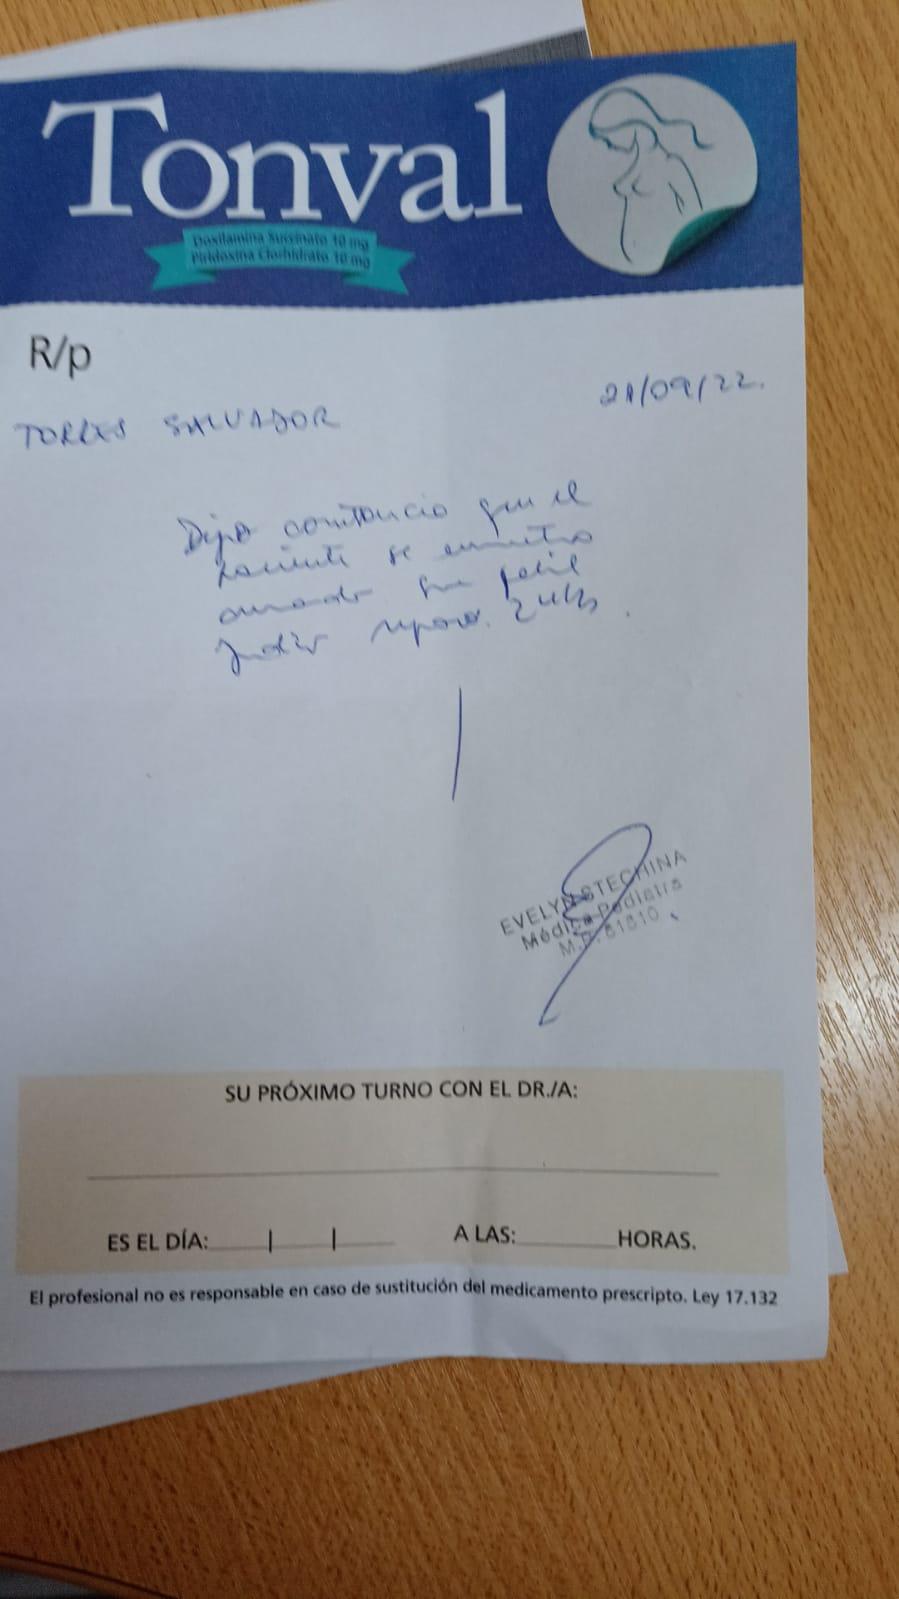 Tonval
Doxilamina Succinato 10 mg
Piridoxina Clorhidrato 10 mg
R/p
21/09/22.
TORRES SALVADOR
Dejo constancia que el
paciente se encuentra
cursando febril
reposo. 24hs.
EVELYN STECHINA
Médica Pediatra
M.P. 61610
SU PRÓXIMO TURNO CON EL DR./A:
ES EL DÍA: A LAS: HORAS.
El profesional no es responsable en caso de sustitución del medicamento prescripto. Ley 17.132